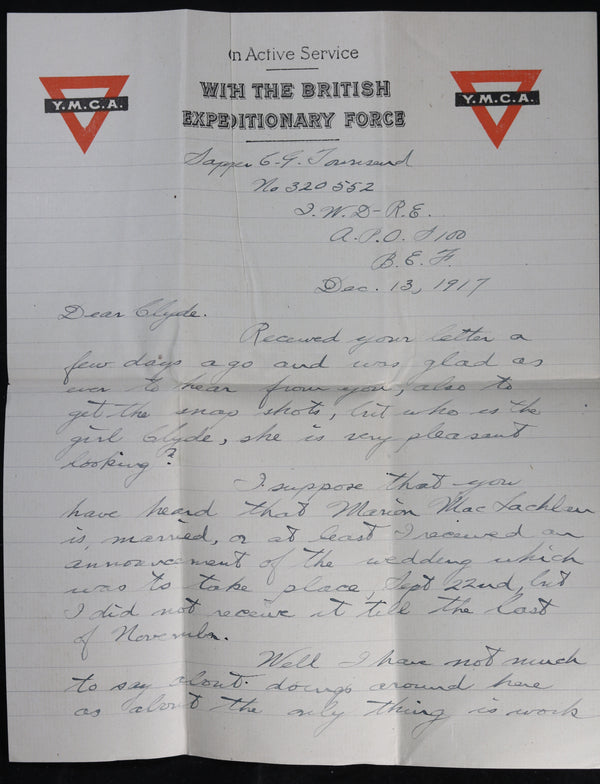 On Active Service
WITH THE BRITISH
EXPEDITIONARY FORCE
Y.M.C.A.
Y.M.C.A.
Sapper C. G. Townsend
No 320552
I. W. D - R. E.
A. P. O. S 100
B. E. F
Dec. 13, 1917
Dear Clyde.
Received your letter a
few days ago and was glad as
ever to hear from you, also to
get the snap shots, but who is the
girl Clyde, she is very pleasant
looking?
I suppose that you
have heard that Marion MacLachlan
is, married, or at least I received an
announcement of the wedding which
was to take place, Sept 22nd, but
I did not receive it till the last
of November.
Well I have not much
to say about doings around here
as about the only thing is work